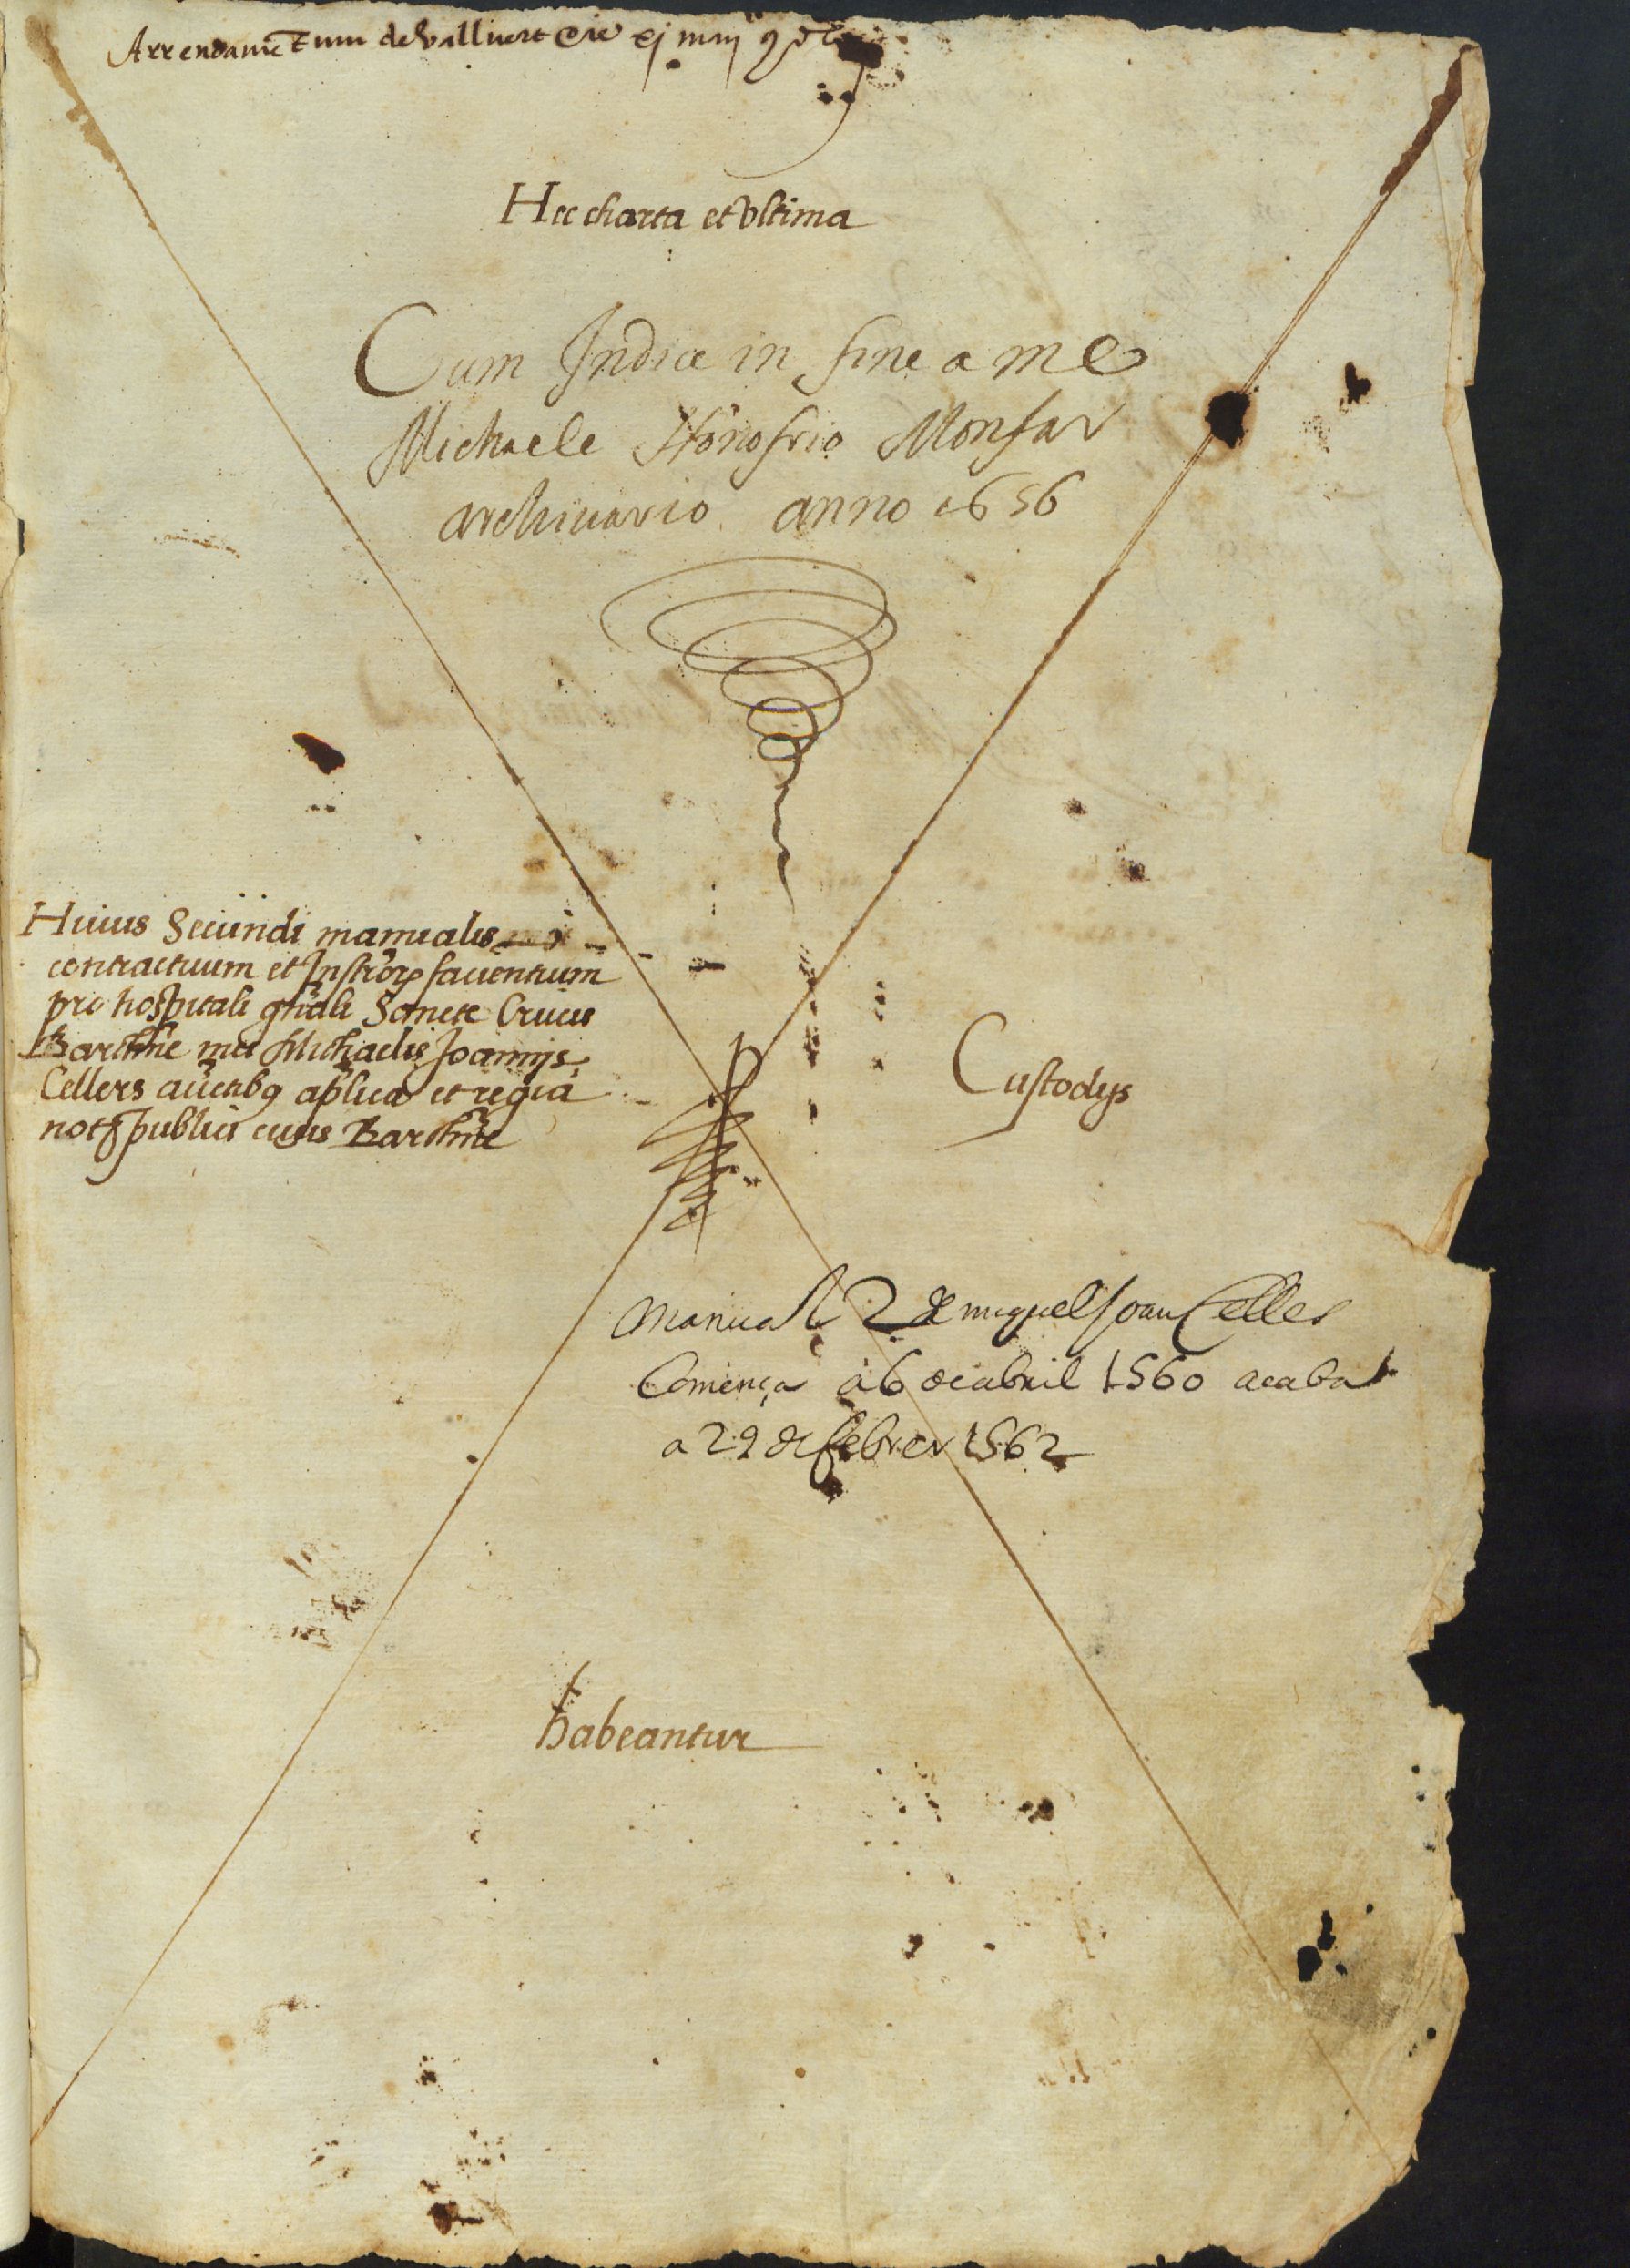 Arrendametum de Vallvert die xj maij
Hec charta et vltima
Cum Indice in fine a me
Michaele Honofrio Monfar
archiuario anno 1656
Huius Secundi manualis
contractuum et Instrorꝝ facientium
pro hospitali gñali Sancte Crucis
Barchne mei Michaelis Joannis
Cellers auctbꝯ aplica et regia
notꝭ publici ciuis Barchne
Custodijs
Manual 2 de miquel Joan Celles
Comença a 6 de abril 1560 acaba
a 29 de febrer 1562
habeantur